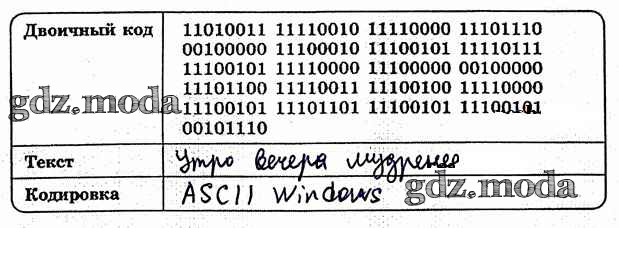 Двоичный код 11010011 11110010 11110000 11101110
00100000 11100010 11100101 11110111
11100101 11110000 11100000 00100000
11101100 11110011 11100100 11110000
gdz.moda
11100101 11101101 11100101 11100101
00101110
Текст Утро вечера мудренее
Кодировка ASCII Windows
gdz.moda